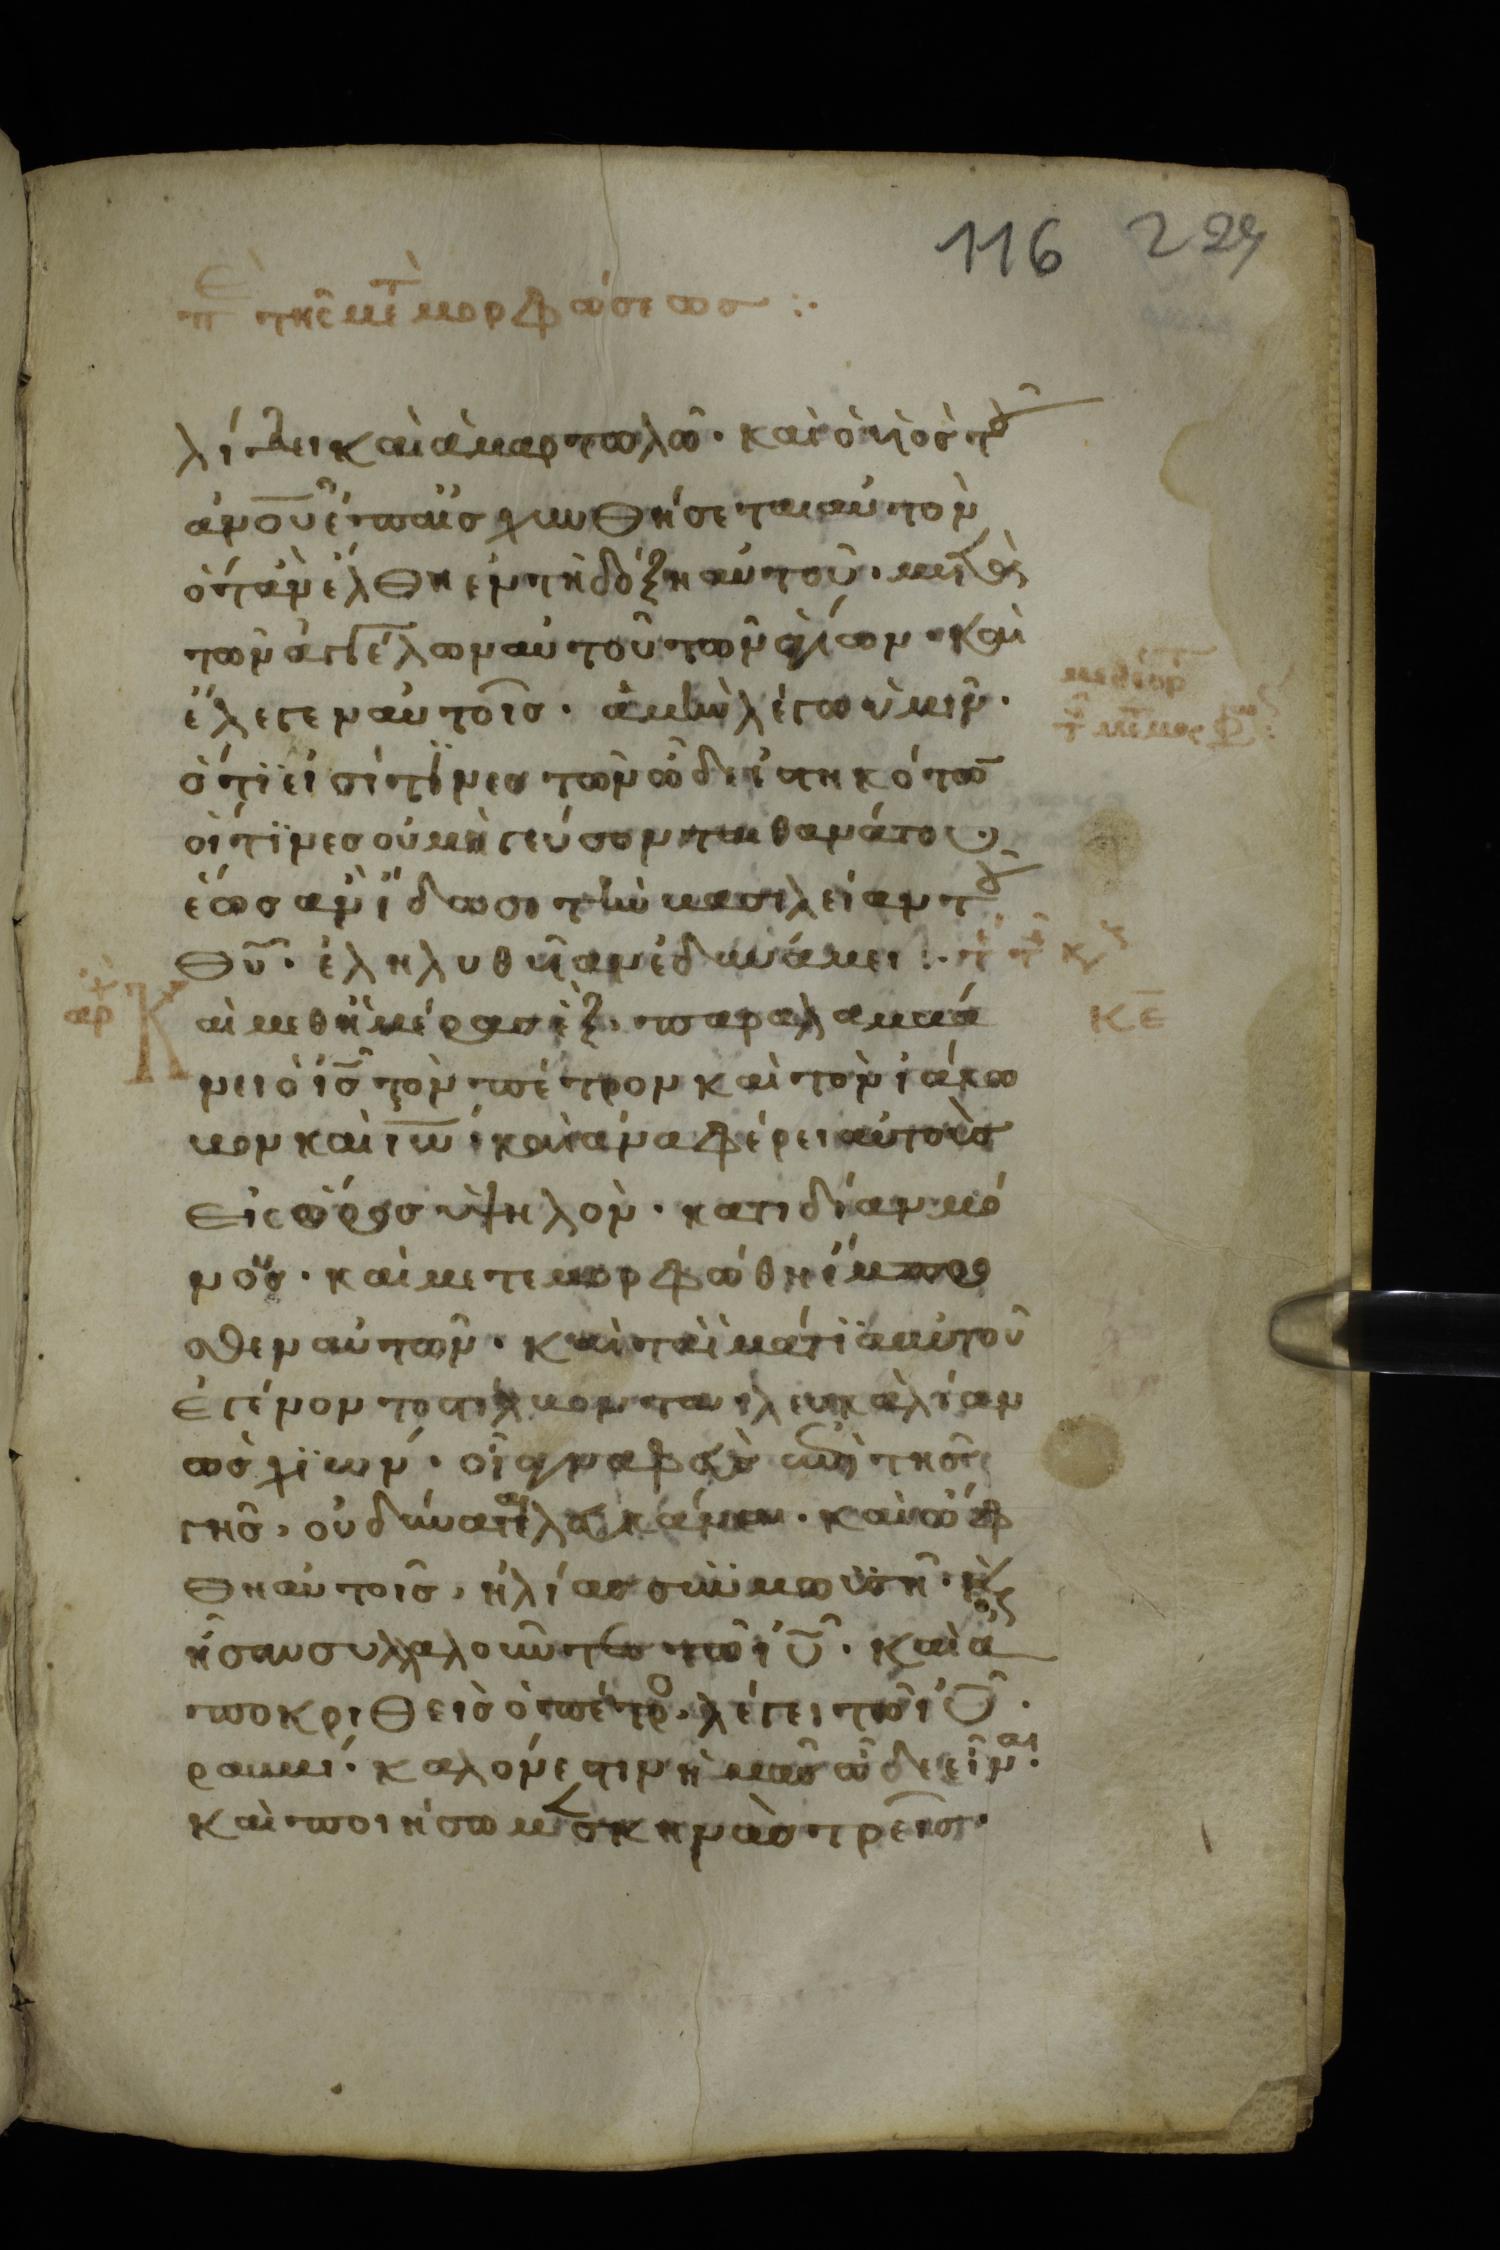 116 224
κε περὶ τῆς μεταμορφώσεως :·
λίδι καὶ ἁμαρτωλῶ· καὶ ὁ υἱὸς τοῦ
ἀνου ἐπαισχυνθήσεται αὐτὸν
ὅταν ἔλθη ἐν τῆ δόξη αὐτοῦ· μετὰ
τῶν ἀγγέλων αὐτοῦ τῶν ἁγίων· καὶ
ἔλεγεν αὐτοῖς· ἀμὴν λέγω ὑμῖν·
ὅτϊ εἰσί τϊνες τῶν ὧδε ἑστηκότων
οἵτϊνες οὐ μὴ γεύσονται θανάτου·
ἕως ἂν ἴδωσι τὴν βασιλείαν τοῦ
θυ· ἐληλυθυῖαν ἐν δυνάμει :·
αρχ Καὶ μεθ ἡμέρας ἓξ· παραλαμβά
κε
νει ὁ ις τὸν πέτρον καὶ τὸν ἰάκω
βον καὶ ιω· καὶ ἀναφέρει αὐτοὺς
εἰς ὄρος ὑψηλὸν· κατιδίαν μό
νους· καὶ μετεμορφώθη ἔμπρο
σθεν αὐτῶν· καὶ τὰ ἱμάτϊα αὐτοῦ
ἐγένοντο στίλβοντα· λευκὰ λίαν
ὡς χϊών· οἷα γναφεὺς ἐπὶ τῆς
γῆς, οὐ δύναται λευκάναι· καὶ ὤφ
θη αὐτοῖς, ἠλίας σὺν μωϋσῆ· καὶ
ἦσαν συλλαλοῦντες τῶ ιυ· καὶ ἀ
ποκριθεὶς ὁ πέτρος, λέγει τῶ ιυ·
ραββί· καλόν ἐστιν ἡμᾶς ὧδε εἶναι·
καὶ ποιήσωμεν σκηνὰς τρεῖς·